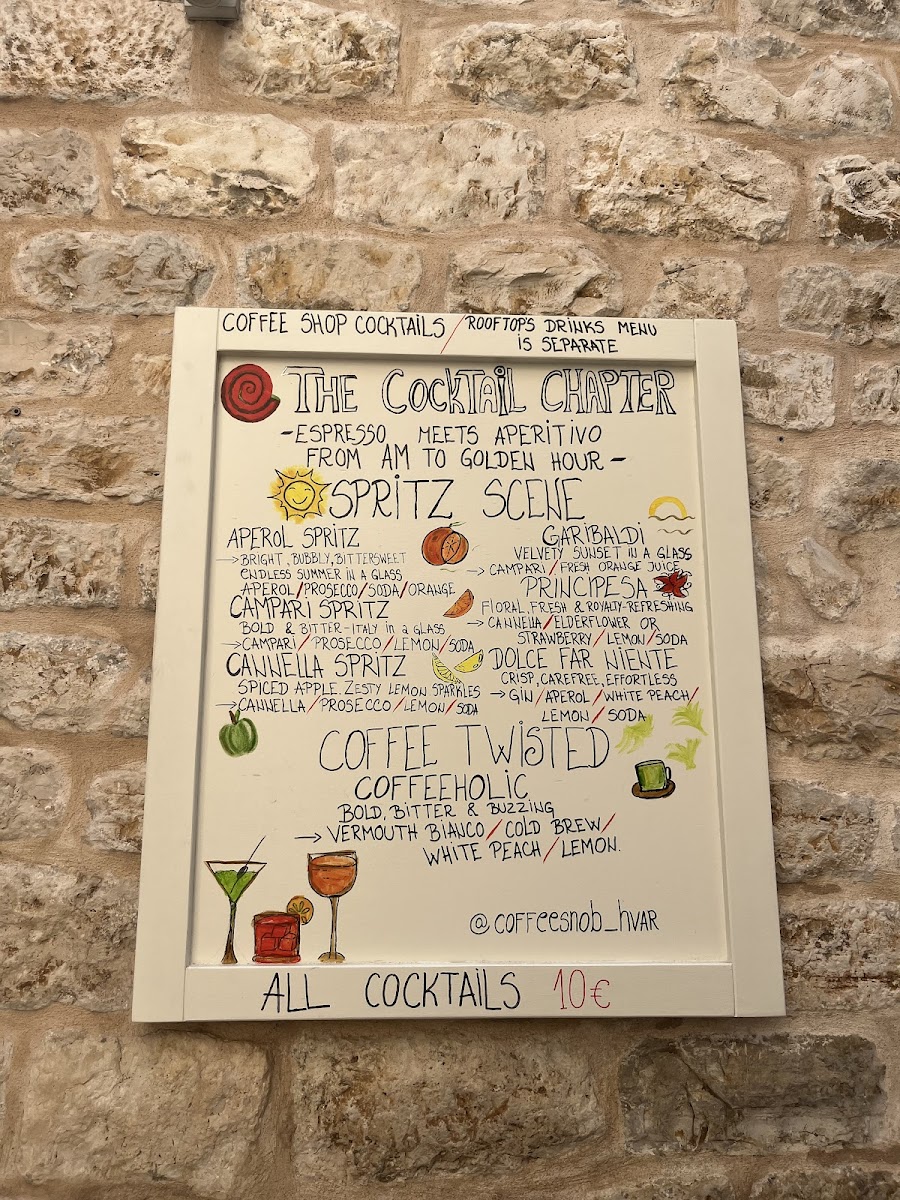 COFFEE SHOP COCKTAILS / ROOFTOP'S DRINKS MENU
IS SEPARATE
THE COCKTAIL CHAPTER
-ESPRESSO MEETS APERITIVO
FROM AM TO GOLDEN HOUR-
SPRITZ SCENE
APEROL SPRITZ
→BRIGHT, BUBBLY, BITTERSWEET
ENDLESS SUMMER IN A GLASS
APEROL/PROSECCO/SODA/ORANGE
CAMPARI SPRITZ
BOLD & BITTER-ITALY in a GLASS
→CAMPARI/PROSECCO/LEMON/SODA
CANNELLA SPRITZ
SPICED APPLE. ZESTY LEMON SPARKLES
→CANNELLA/PROSECCO/LEMON/SODA
GARIBALDI
VELVETY SUNSET IN A GLASS
→CAMPARI/FRESH ORANGE JUICE
PRINCIPESA
FLORAL, FRESH & ROYALTY-REFRESHING
→CANNELLA/ELDERFLOWER OR
STRAWBERRY/LEMON/SODA
DOLCE FAR NIENTE
CRISP, CAREFREE, EFFORTLESS
→GIN/APEROL/WHITE PEACH/
LEMON/SODA
COFFEE TWISTED
COFFEEHOLIC
BOLD, BITTER & BUZZING
→VERMOUTH BIANCO/COLD BREW/
WHITE PEACH/LEMON.
@COFFEESNOB_HVAR
ALL COCKTAILS 10€